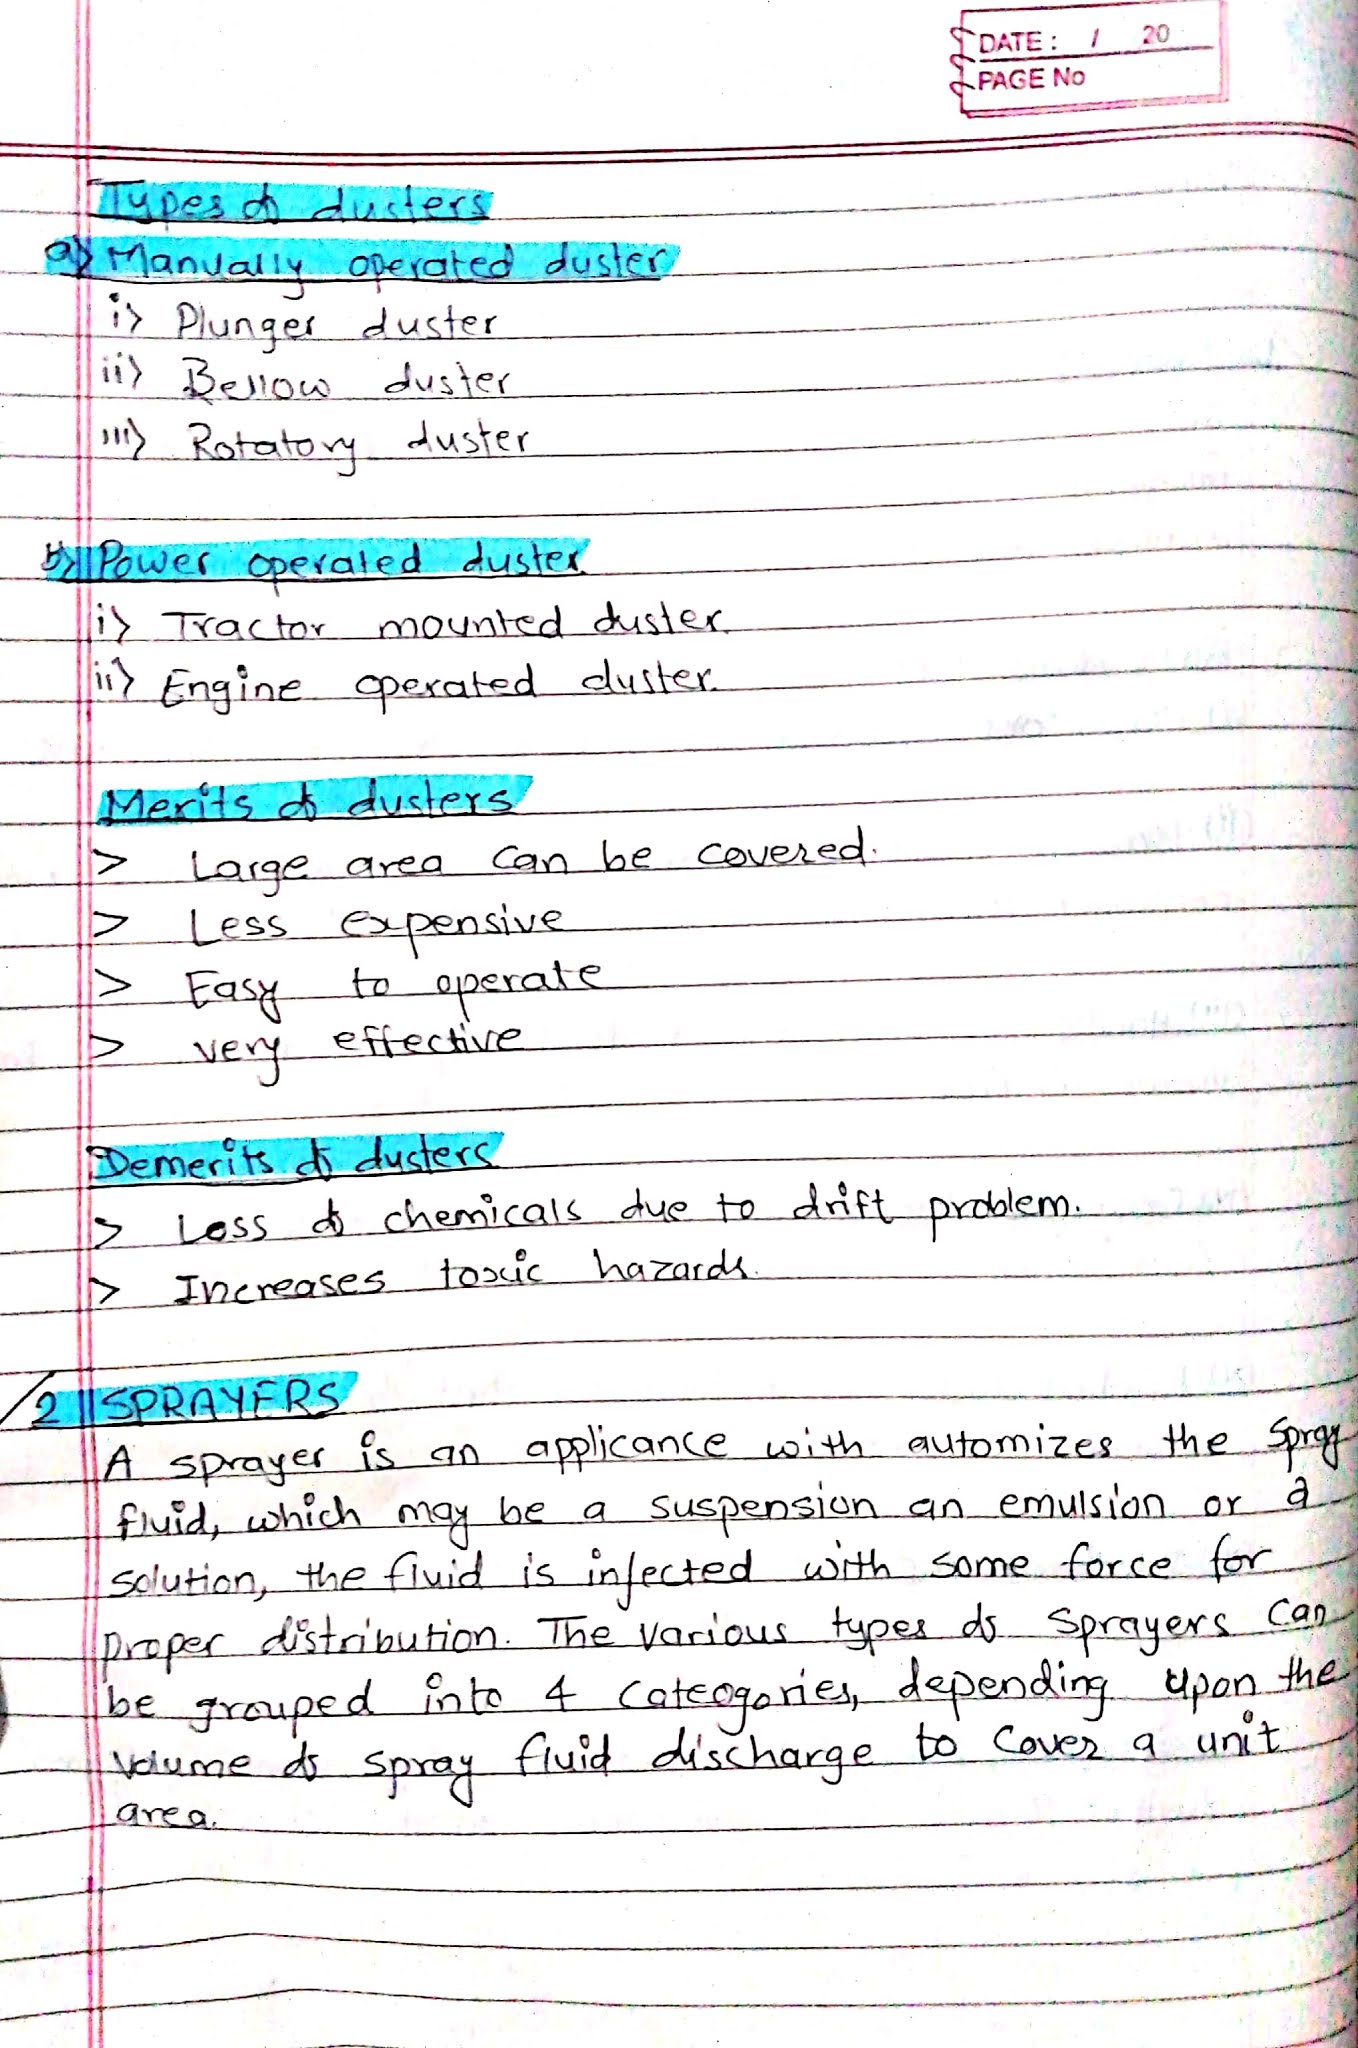 DATE: / 20
PAGE No
Types of dusters
a) Manually operated duster
i) Plunger duster
ii) Bellow duster
iii) Rotatory duster
b) Power operated duster
i) Tractor mounted duster
ii) Engine operated duster
Merits of dusters
> Large area can be covered.
> Less expensive
> Easy to operate
> very effective
Demerits of dusters
> Loss of chemicals due to drift problem.
> Increases toxic hazards
2 SPRAYERS
A sprayer is an applicance with automizes the spray
fluid, which may be a suspension an emulsion or a
solution, the fluid is infected with some force for
proper distribution. The various types of sprayers can
be grouped into 4 cateogories, depending upon the
volume of spray fluid discharge to cover a unit
area.